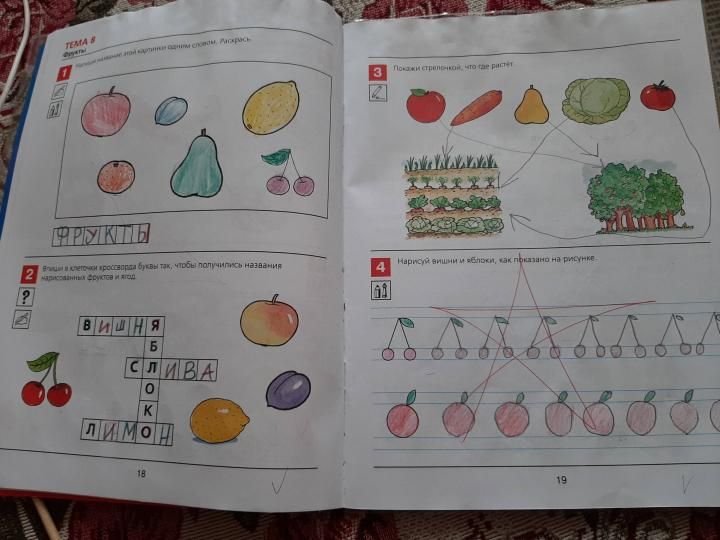 ТЕМА 8
Фрукты
1 Напиши название этой картинки одним словом. Раскрась.
ФРУКТЫ
2 Впиши в клеточки кроссворда буквы так, чтобы получились названия
нарисованных фруктов и ягод.
?
ВИШНЯ
ЯБЛОКО
СЛИВА
ЛИМОН
18
3 Покажи стрелочкой, что где растёт.
4 Нарисуй вишни и яблоки, как показано на рисунке.
19